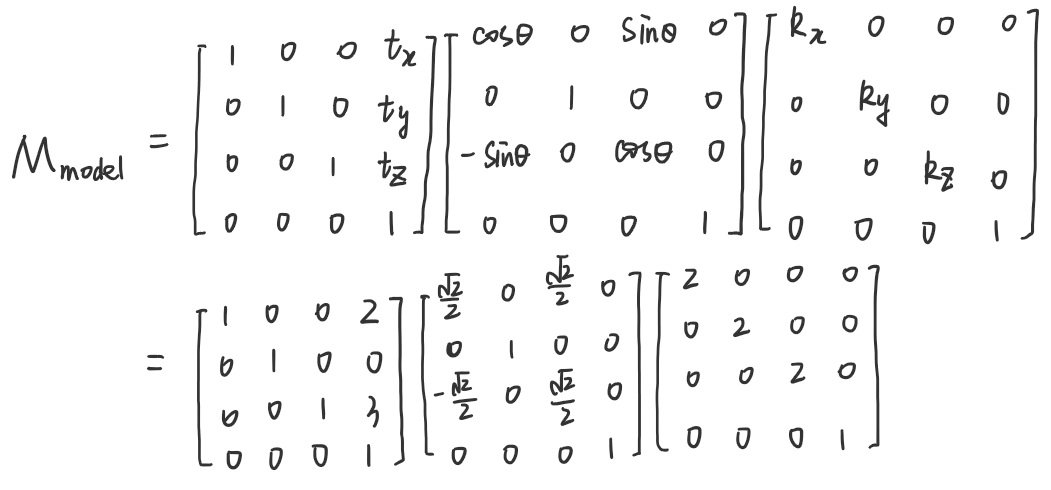 M_model = [1 0 0 t_x; 0 1 0 t_y; 0 0 1 t_z; 0 0 0 1] [cosθ 0 sinθ 0; 0 1 0 0; -sinθ 0 cosθ 0; 0 0 0 1] [k_x 0 0 0; 0 k_y 0 0; 0 0 k_z 0; 0 0 0 1]
= [1 0 0 2; 0 1 0 0; 0 0 1 3; 0 0 0 1] [√2/2 0 √2/2 0; 0 1 0 0; -√2/2 0 √2/2 0; 0 0 0 1] [2 0 0 0; 0 2 0 0; 0 0 2 0; 0 0 0 1]